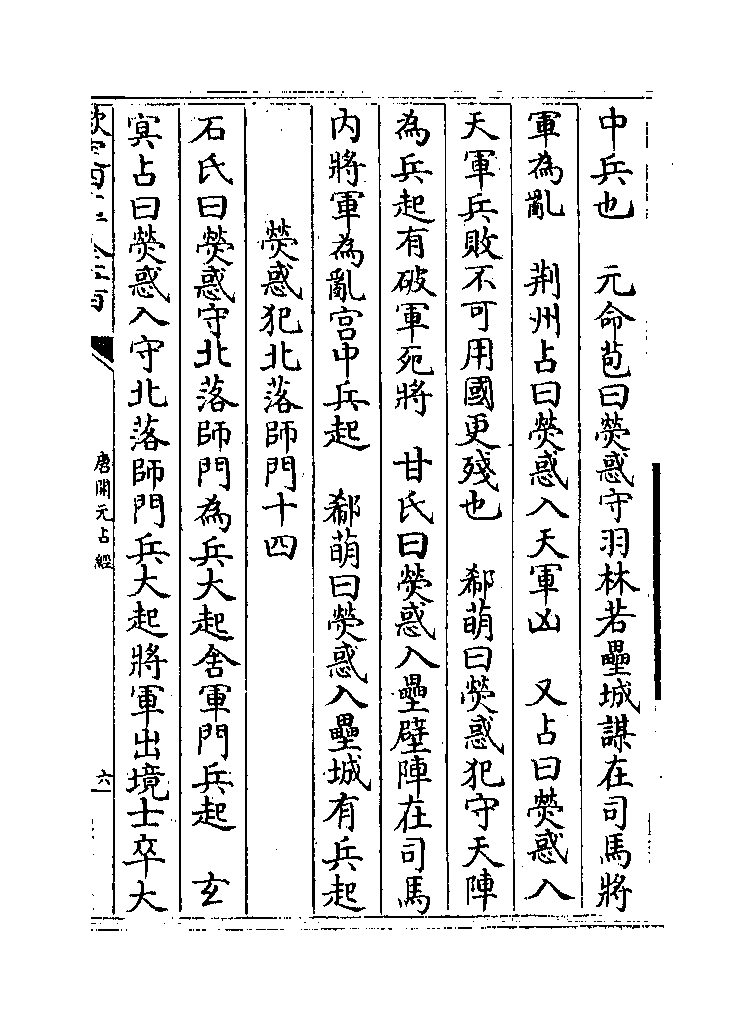 中兵也　元命苞曰熒惑守羽林若壘城謀在司馬將
軍為亂　荆州占曰熒惑入天軍凶　又占曰熒惑入
天軍兵敗不可用國更殘也　郗萌曰熒惑犯守天陣
為兵起有破軍死將　甘氏曰熒惑入壘壁陣在司馬
内將軍為亂宫中兵起　郗萌曰熒惑入壘城有兵起
熒惑犯北落師門十四
石氏曰熒惑守北落師門為兵大起舍軍門兵起　玄
㝠占曰熒惑入守北落師門兵大起將軍出境士卒大
唐開元占經
六